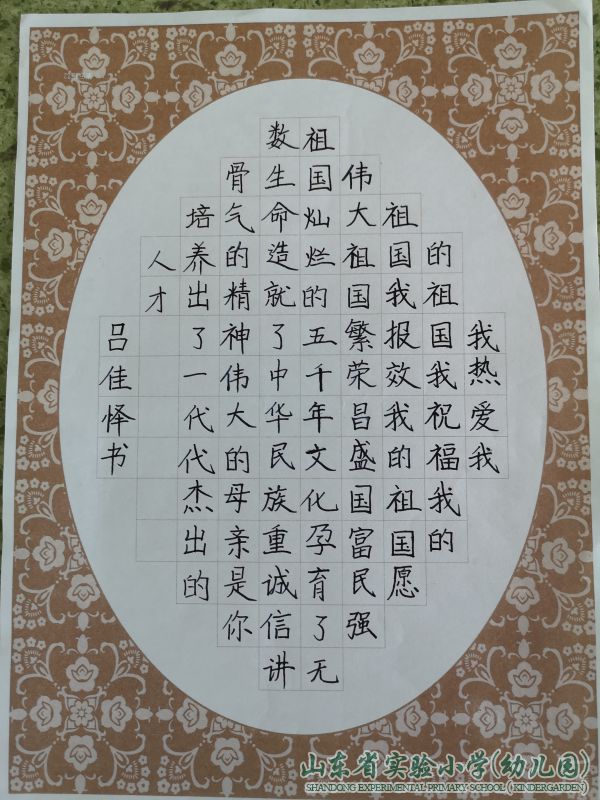 我热爱我
的祖国我祝福我的
祖国我报效我的祖国愿
伟大祖国繁荣昌盛国富民强
祖国灿烂的五千年文化孕育了无
数生命造就了中华民族重诚信讲
骨气的精神伟大的母亲是你
培养出了一代代杰出的
人才
吕佳怿书
山东省实验小学(幼儿园)
SHANDONG EXPERIMENTAL PRIMARY SCHOOL ( KINDERGARDEN)